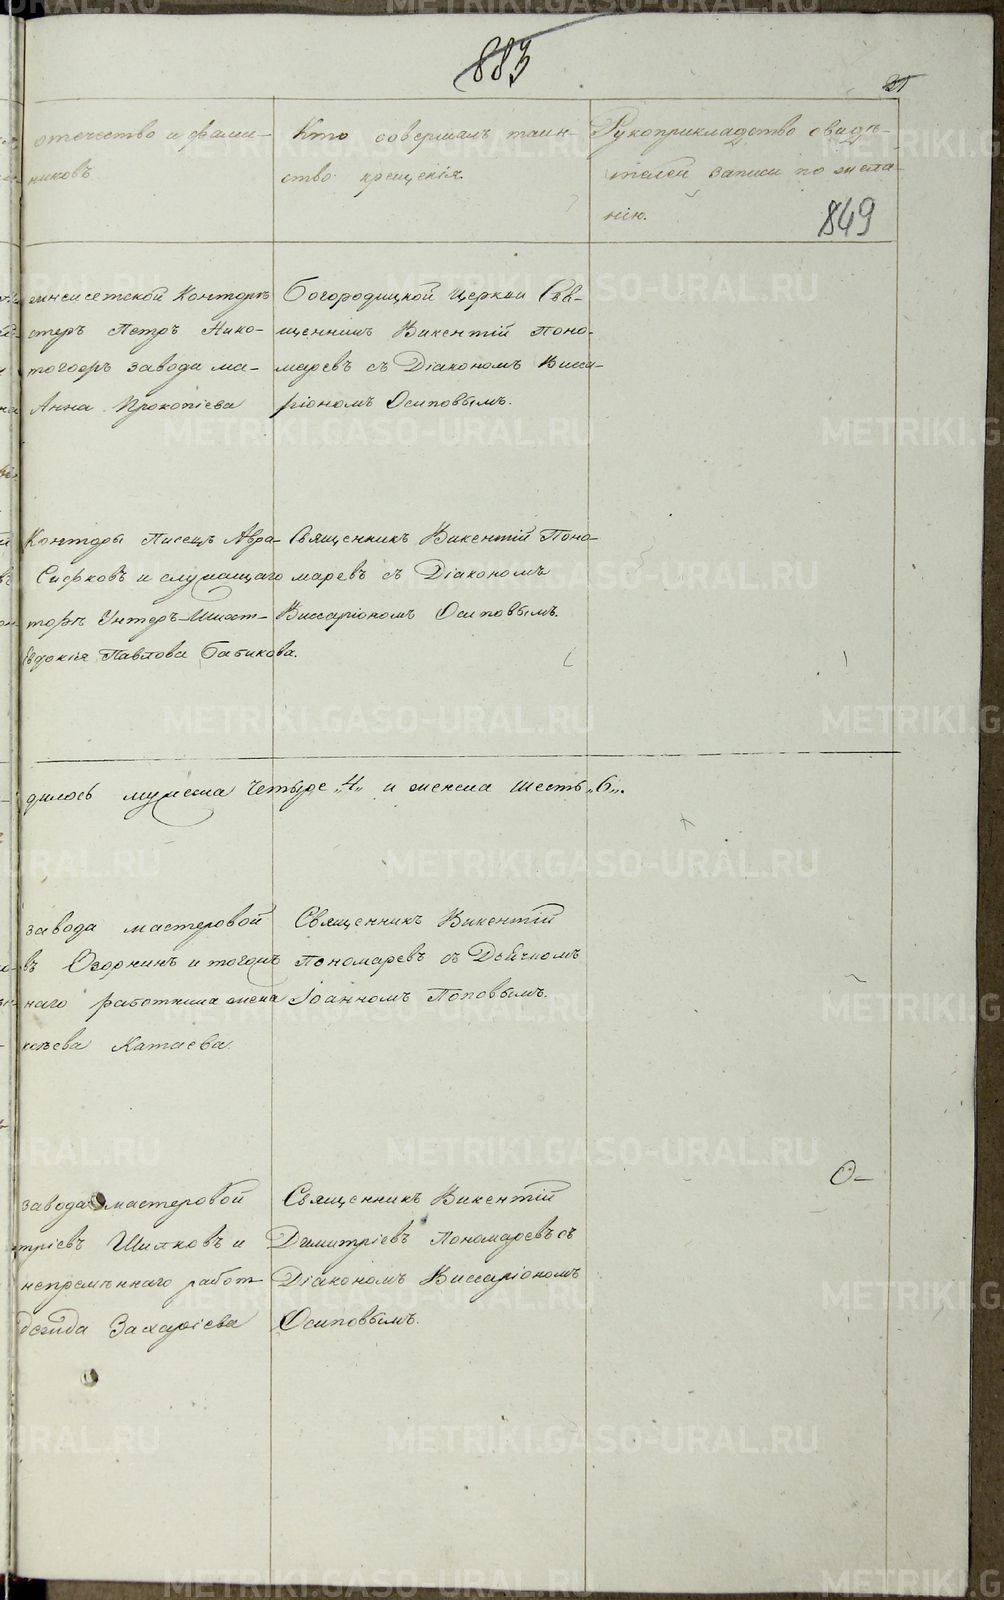 883
отечество и фами-
никовъ
Кто совершалъ таин-
ство крещенія.
Рукоприкладство свидѣ-
телей записи по жела-
нію.
849
Конторѣ
стеръ Петръ Нико-
тогоже завода ма-
Анна Прокопіева
Богородицкой церкви Свя-
щенникъ Викентій Поно-
маревъ съ Діакономъ Висса-
ріономъ Осиповымъ.
Конторы Писецъ Авра-
Сиѳковъ и служащаго
торѣ Унтеръ-Шихт-
Евдокія Павлова Бабикова.
Священникъ Викентій Поно-
маревъ съ Діакономъ
Виссаріономъ Осиповымъ.
дилось мужеска четыре „4„ и женска шесть „6„.
завода мастеровой
въ Озорнинъ и тогожъ
наго работника жена
Катаева.
Священникъ Викентій
Пономаревъ съ Дьячкомъ
Іоанномъ Поповымъ.
завода мастеровой
тріевъ Шилковъ и
непремѣннаго работ-
Захаріева
Священникъ Викентій
Димитріевъ Пономаревъ съ
Діакономъ Виссаріономъ
Осиповымъ.
METRIKI.GASO-URAL.RU